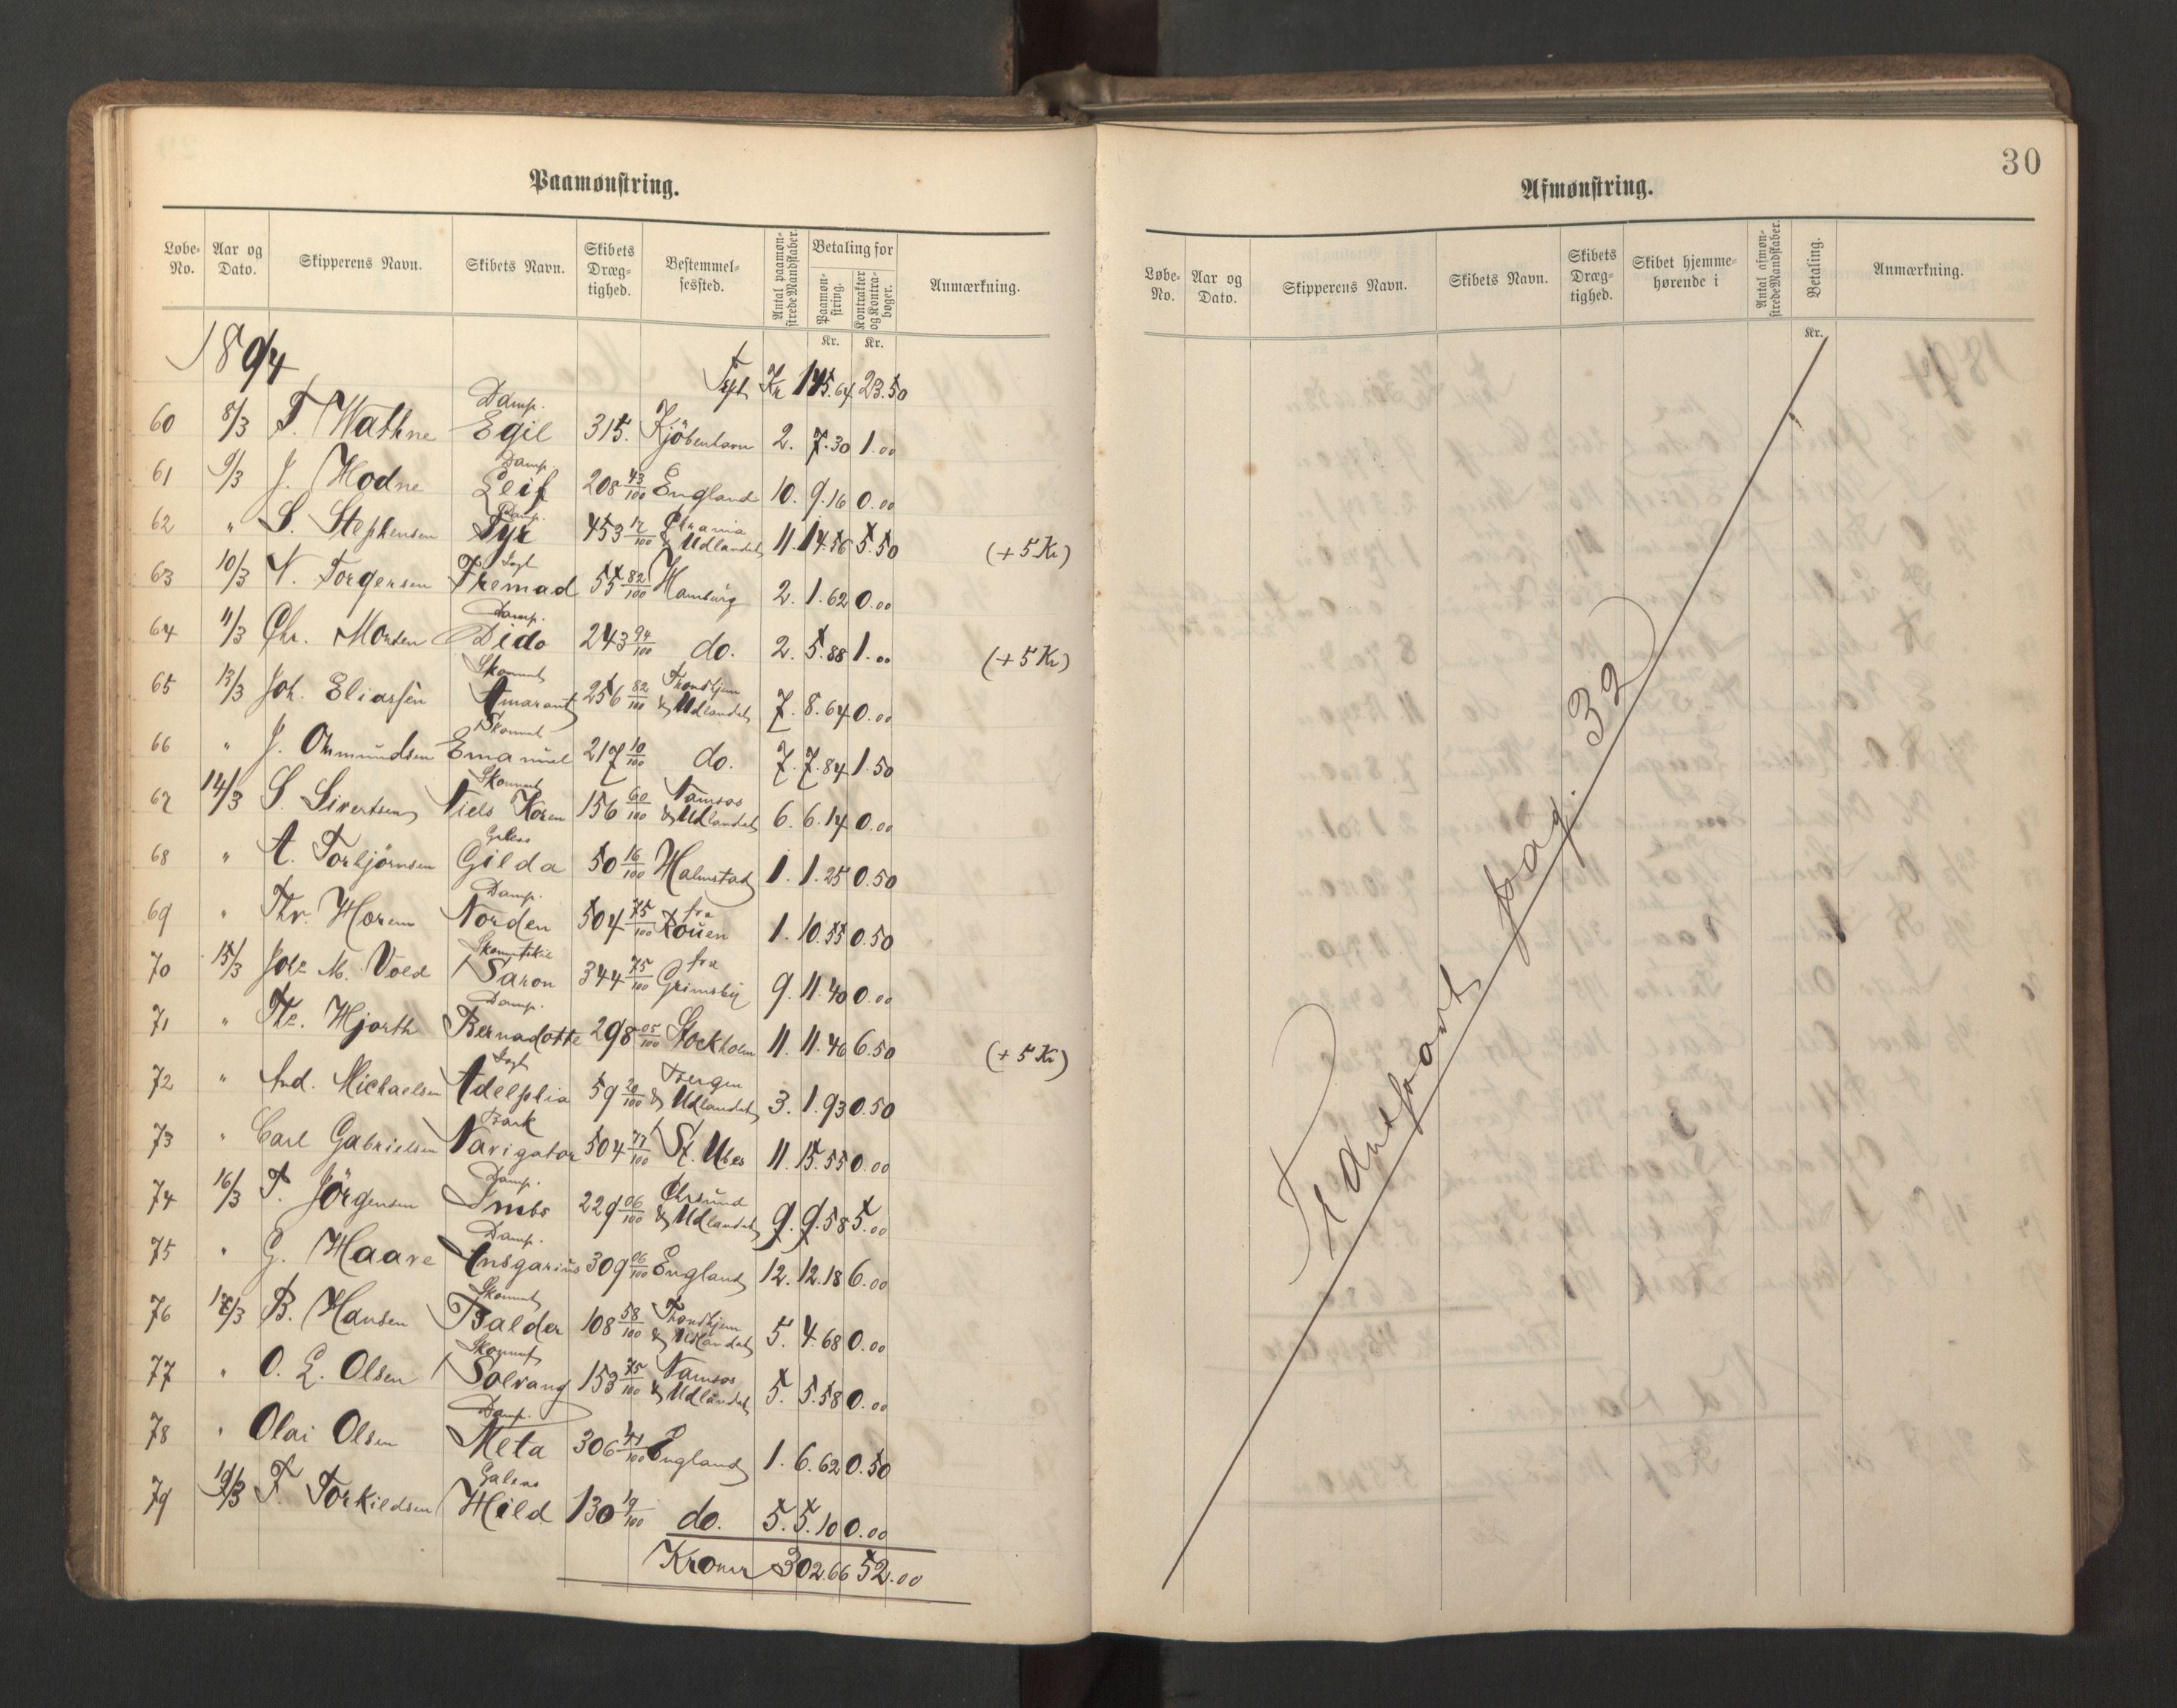 Paamønstring.
Løbe-No. Aar og Dato. Skipperens Navn. Skibets Navn. Skibets Dræg-tighed. Bestemmel-sessted. Antal paamøn-strede Mandskaber. Betaling for Paamøn-string. Kontrakter og Kontra-bøger. Anmærkning.
Kr. Kr.
1894 Kr 145.64 23.50
60 8/3 T. Wathne Damp. Egil 315. Kjöbenhavn 2. 7.30 1.00
61 9/3 J. Hodne Damp. Leif 208 43/100 England 10. 9.16 0.00
62 " S. Stephensen Damp. Tyr 453 12/100 Chrania & Udlandet 11. 14.56 5.50 (+5 Kr)
63 10/3 N. Torgersen Jagt Fremad 55 82/100 Hamburg 2. 1.62 0.00
64 11/3 Chr. Monsen Damp. Dido 243 94/100 do. 2. 5.88 1.00 (+5 Kr)
65 13/3 Joh. Eliassen Skonnert Amarant 256 82/100 Trondhjem & Udlandet 7. 8.64 0.00
66 " J. Ommundsen Skonnert Emanuel 217 10/100 do. 7. 7.84 1.50
67 14/3 S. Sivertsen Skonnert Niels Koren 156 60/100 Namsos & Udlandet 6. 6.14 0.00
68 " A. Torbjörnsen Galeas Gilda 50 16/100 Halmstad 1. 1.25 0.50
69 " Thv. Horem Damp. Norden 504 75/100 fra Rouen 1. 10.55 0.50
70 15/3 Joh. M. Vold Skonnertskib Saron 344 75/100 fra Grimsby 9. 11.40 0.00
71 " Th. Hjorth Damp. Bernadotte 298 05/100 Stockholm 11. 11.46 6.50 (+5 Kr)
72 " And. Michaelsen Jagt Adelphia 59 20/100 Bergen & Udlandet 3. 1.93 0.50
73 " Carl Gabrielsen Bark Navigator 504 77/100 St. Ubes 11. 15.55 0.00
74 16/3 T. Jörgensen Damp. Imbs 229 06/100 Chrsund & Udlandet 9. 9.58 5.00
75 " G. Haave Damp. Ansgarius 309 06/100 England 12. 12.18 6.00
76 17/3 B. Hansen Skonnert Balder 108 58/100 Trondhjem & Udlandet 5. 4.68 0.00
77 " O. L. Olsen Skonnert Solvang 153 75/100 Namsos & Udlandet 5. 5.58 0.00
78 " Olai Olsen Damp. Meta 306 41/100 England 1. 6.62 0.50
79 19/3 T. Torkildsen Galeas Hild 130 19/100 do. 5. 5.10 0.00
Kroner 302.66 52.00
30
Afmønstring.
Løbe-No. Aar og Dato. Skipperens Navn. Skibets Navn. Skibets Dræg-tighed. Skibet hjemme-hørende i Antal afmøn-strede Mandskaber. Betaling. Anmærkning.
Kr.
Transport pag. 32